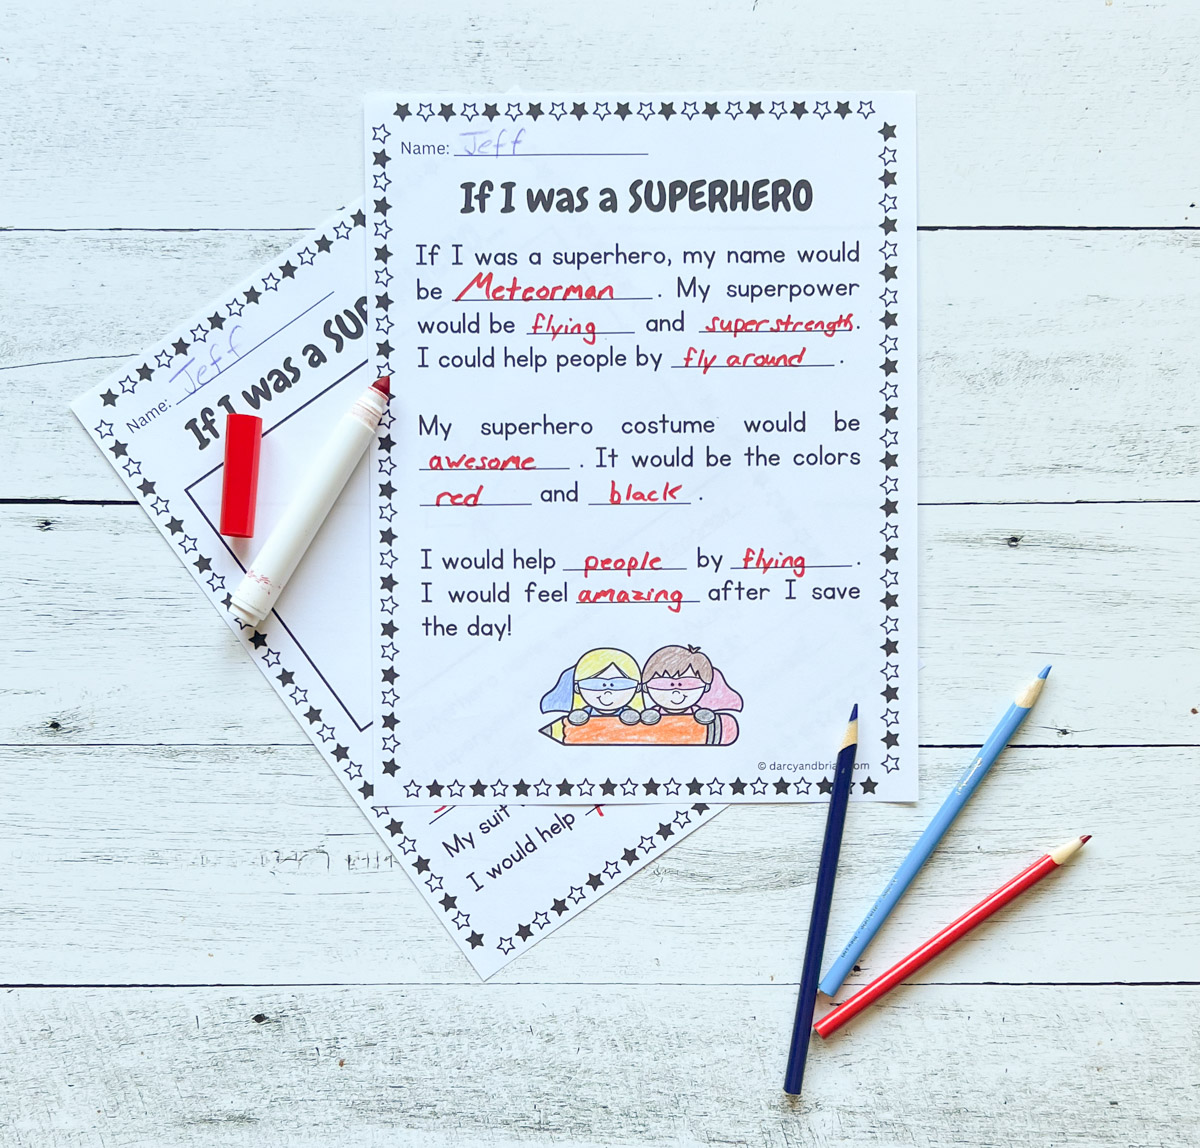 Name: Jeff
If I was a SUPERHERO
If I was a superhero, my name would
be Meteorman. My superpower
would be flying and superstrength.
I could help people by fly around.
My superhero costume would be
awesome. It would be the colors
red and black.
I would help people by flying.
I would feel amazing after I save
the day!
© darcyandbria .com
Name: Jeff
If I was a SUP
My suit
I would help